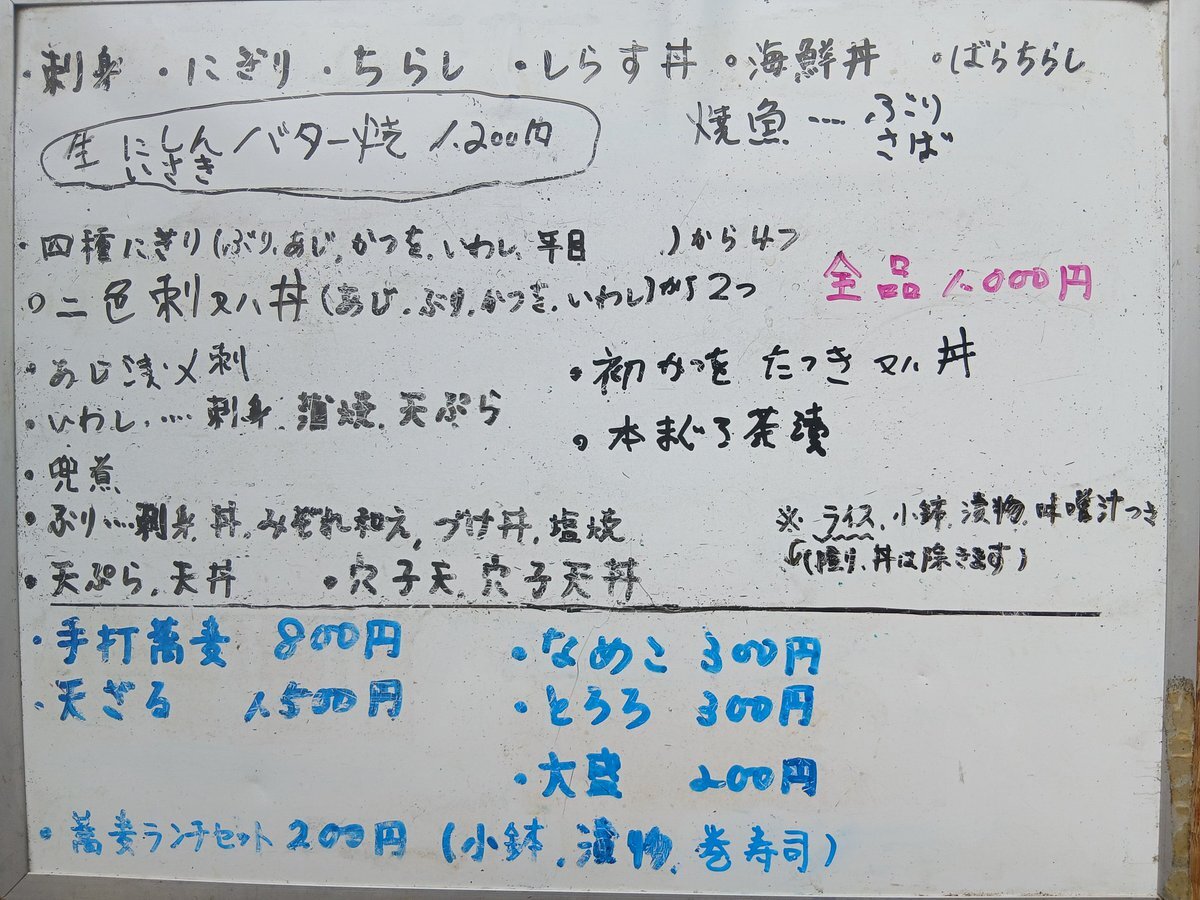 ・刺身 ・にぎり ・ちらし ・しらす丼 ・海鮮丼 ・ばらちらし
生 にしん いさき バター焼 1,200円
焼魚…ぶり さば
・四種にぎり(ぶり,あじ,かつを,いわし,平目 )から4つ
・二色刺又ハ丼(あじ,ぶり,かつを,いわし)から2つ
全品 1,000円
・あじ漬〆刺
・初かつを たつき又ハ丼
・いわし…刺身,蒲焼,天ぷら
・本まぐろ茶漬
・兜煮
・ぶり…刺身,丼,みぞれ和え,づけ丼,塩焼
※ライス,小鉢,漬物,味噌汁つき
(握り,丼は除きます)
・天ぷら,天丼 ・穴子天,穴子天丼
・手打蕎麦 800円
・なめこ 300円
・天ざる 1,500円
・とろろ 300円
・大盛 200円
・蕎麦ランチセット200円(小鉢,漬物,巻寿司)